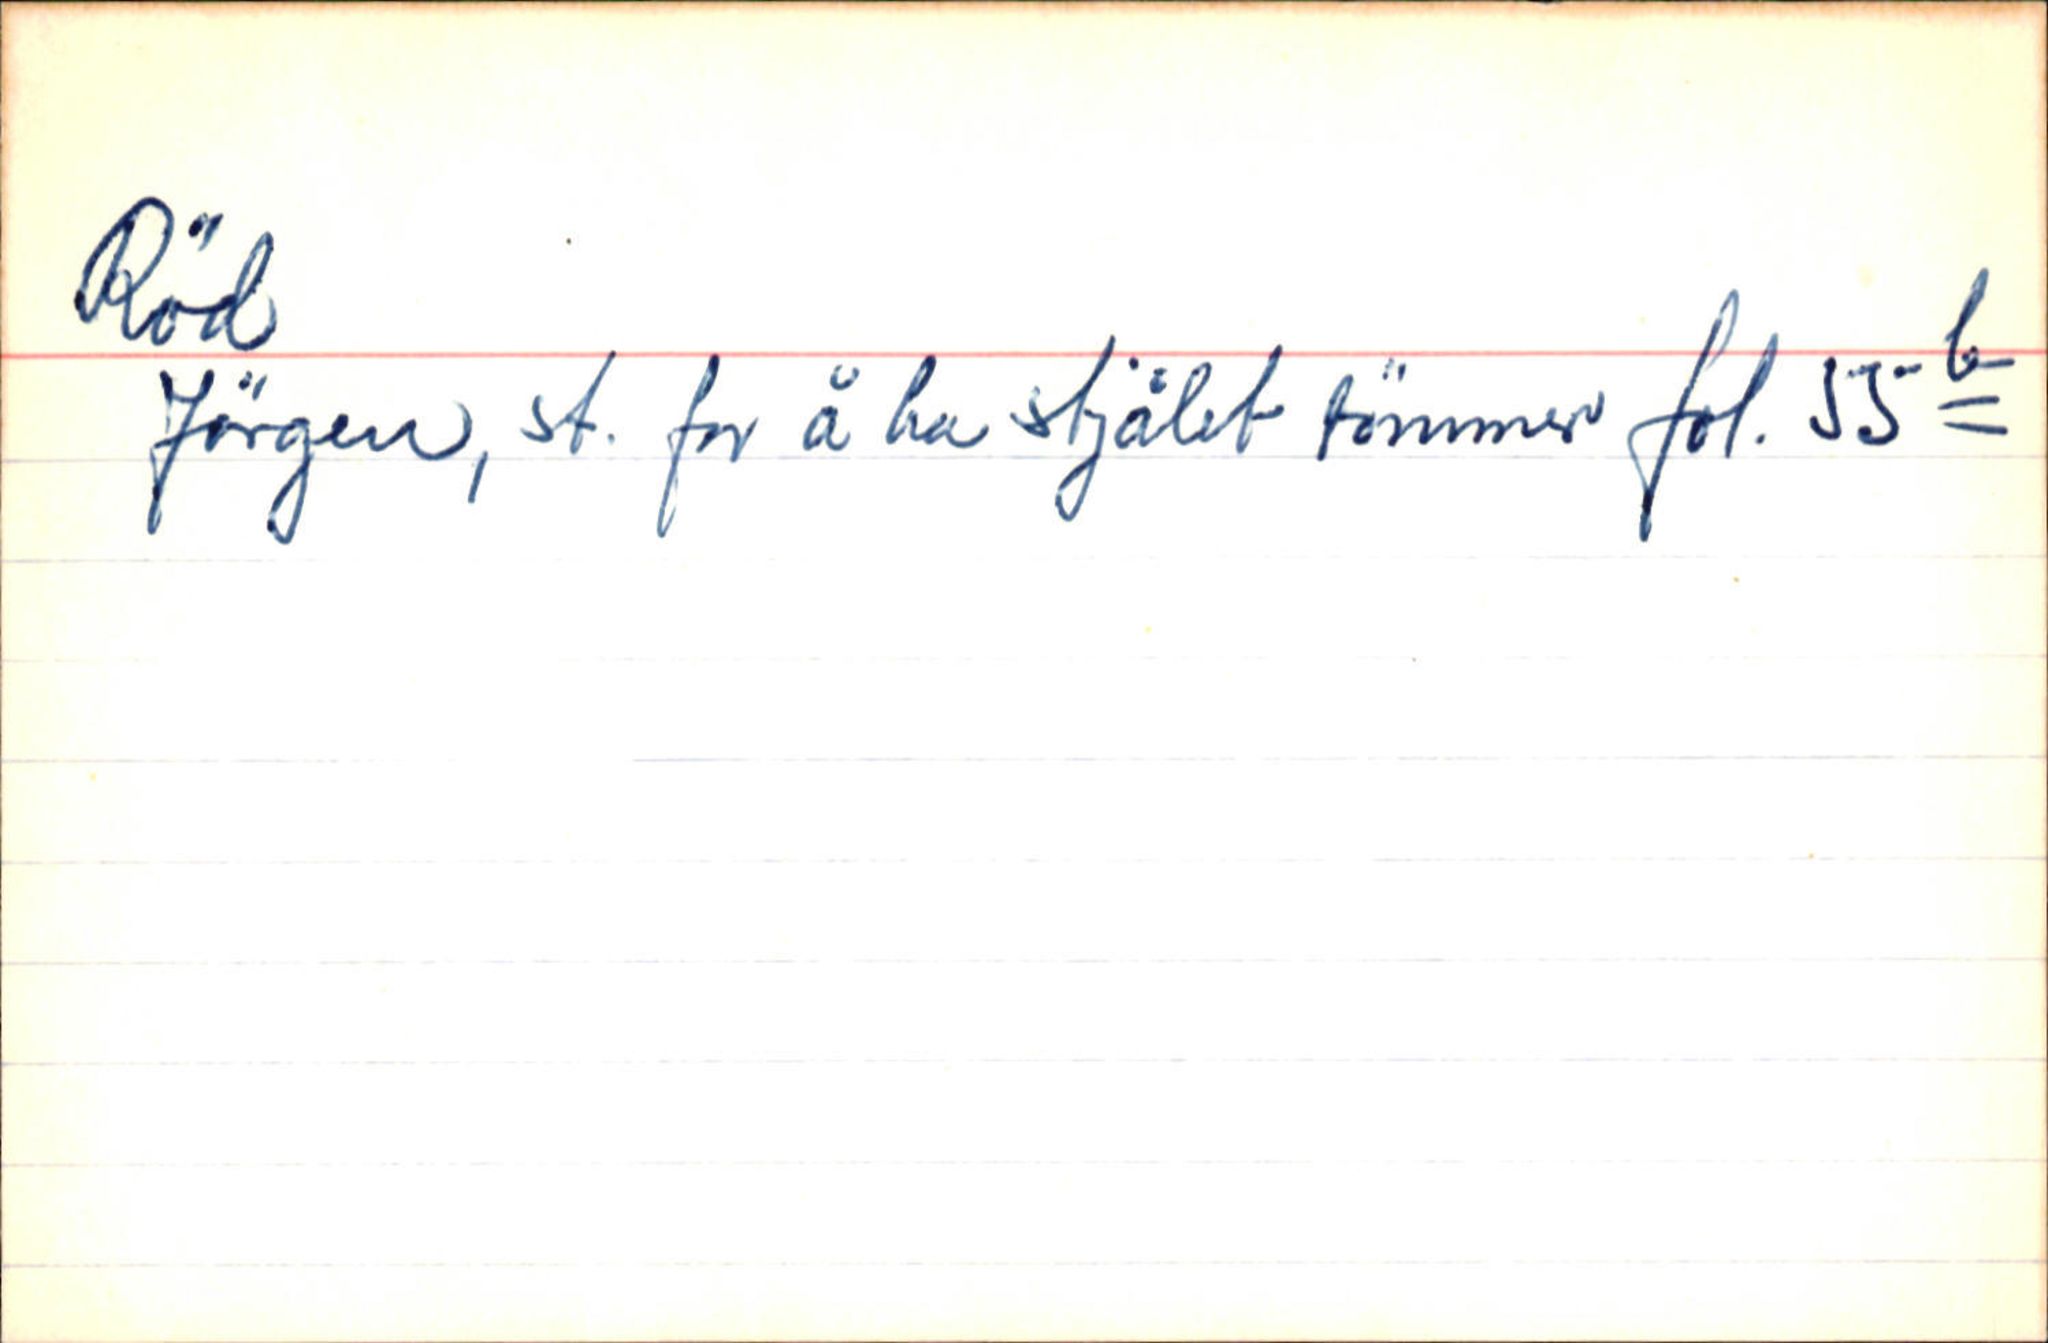 Röd
Jörgen, st. for å ha stjålet tömmer fol. 55 b